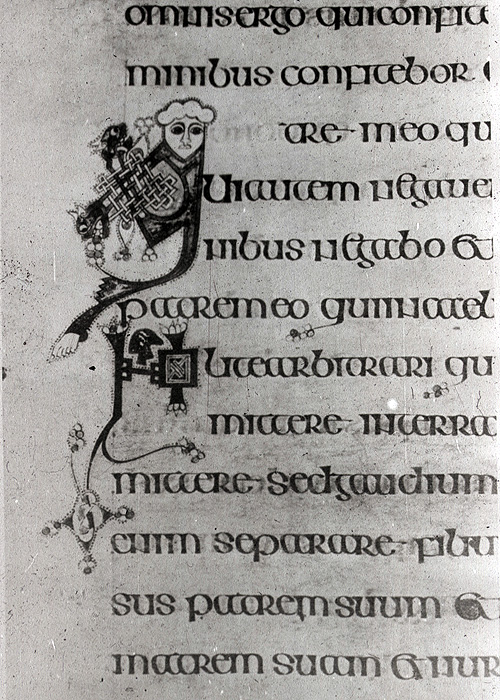 omnis ergo qui confite
minibus confitebor
tre meo qu
Qui autem negaue
nibus negabo et
patre meo qui in cael
Nolite arbitrari qu
mittere in terra
mittere sed gaudium
enim separare filiu
sus patrem suum et
matrem suam et nur